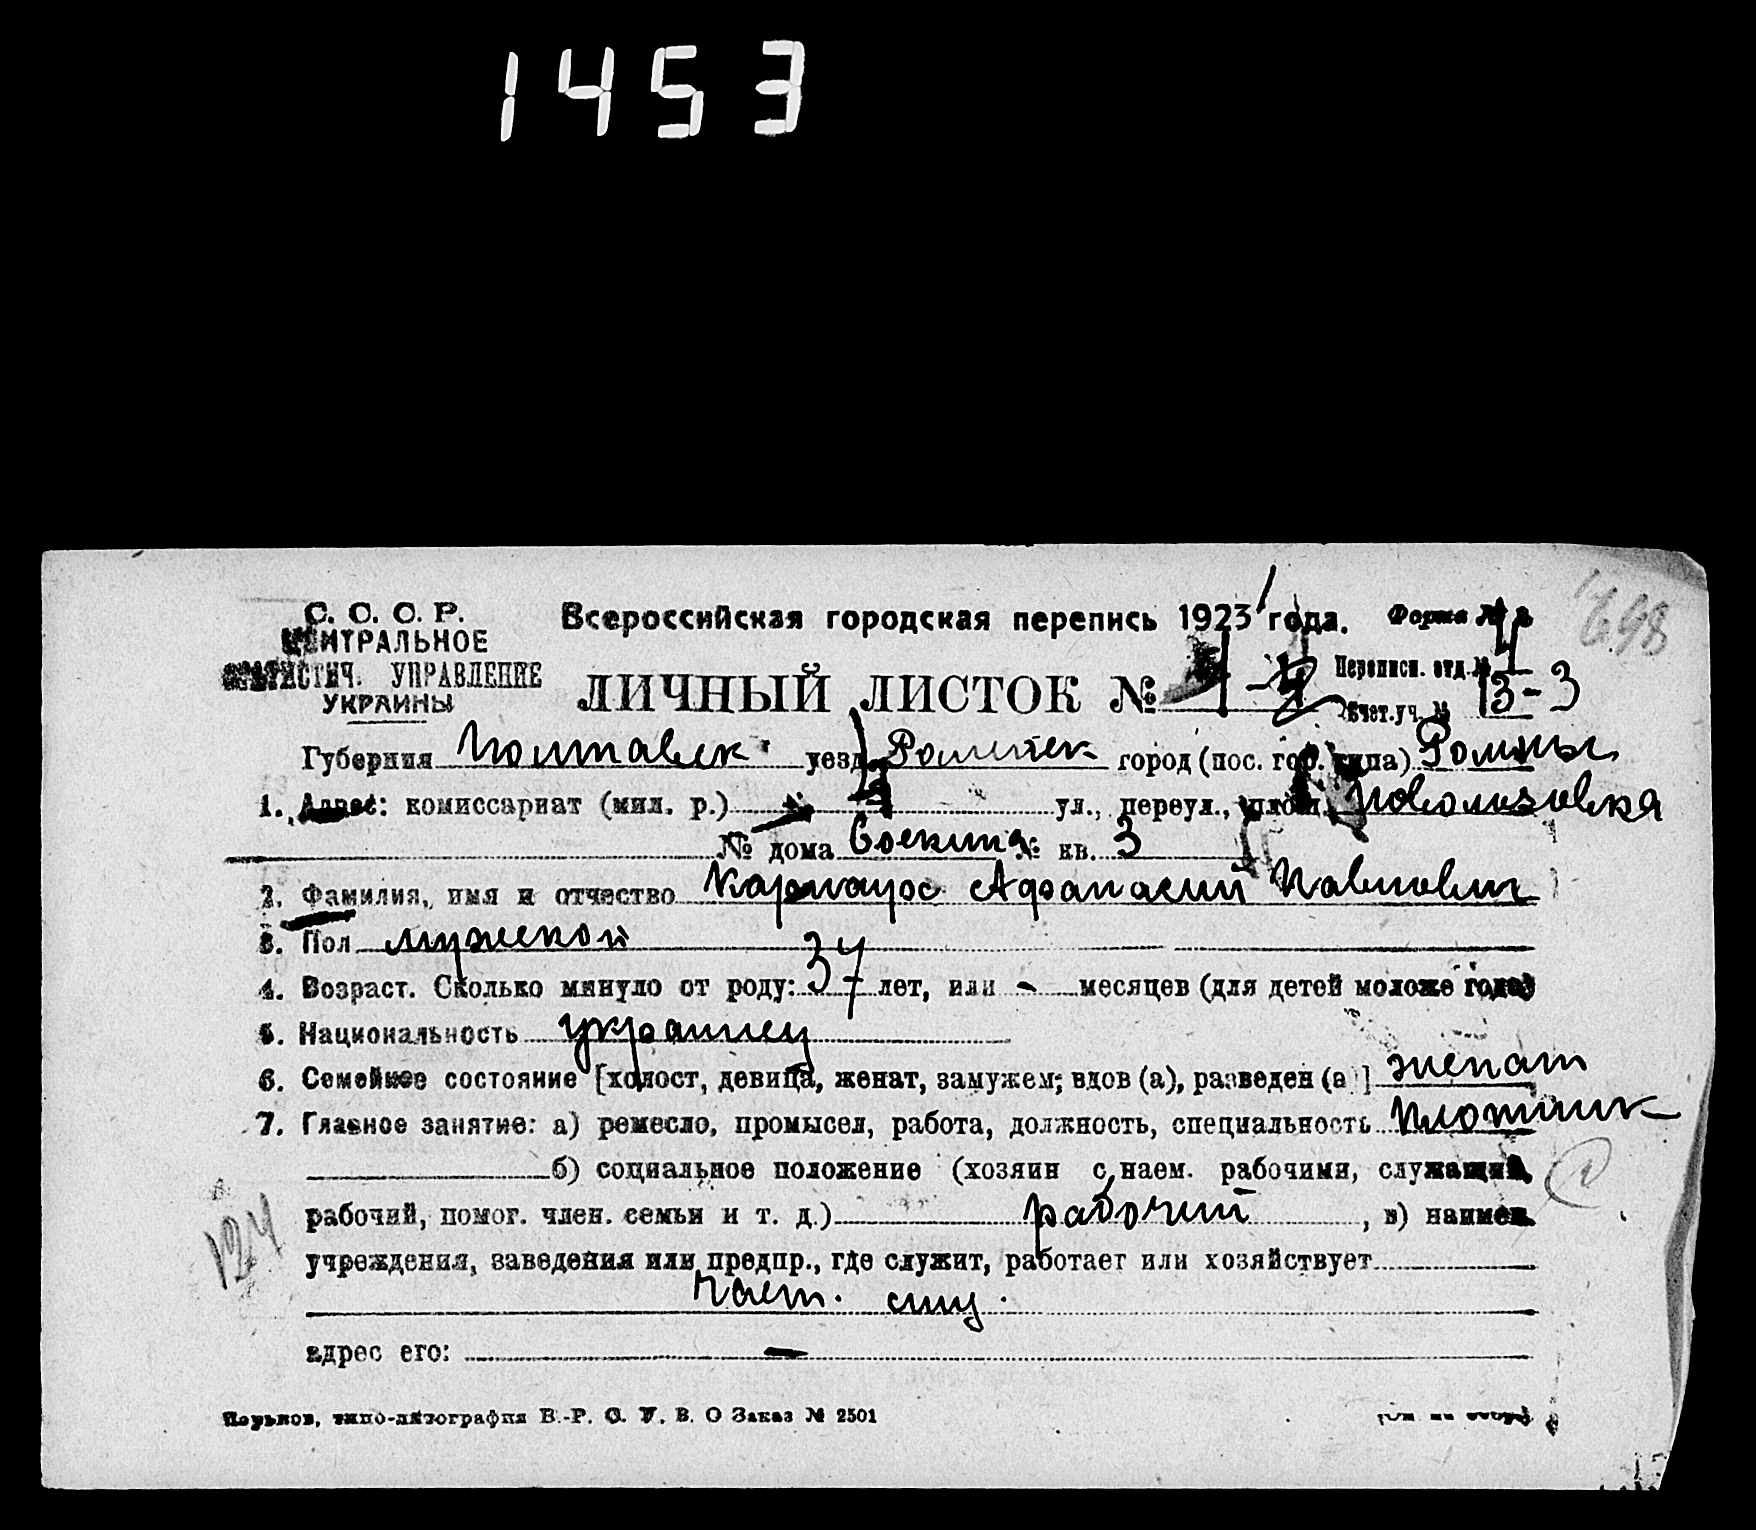 1453
С. С. С. Р.
ЦЕНТРАЛЬНОЕ
СТАТИСТИЧ. УПРАВЛЕНИЕ
УКРАИНЫ
Всероссийская городская перепись 1923 года.
Форма №
698
ЛИЧНЫЙ ЛИСТОК №
Переписн. отд. № 4
Счет. уч. № 13-3
Губерния Полтавск уезд Роменск город (пос. гор. типа) Ромны
1. Адрес: комиссариат (мил. р.) ул., переул., площ.
№ дома № кв. 3
2. Фамилия, имя и отчество Афанасий Павлович
3. Пол мужской
4. Возраст. Сколько минуло от роду: 37 лет, или - месяцев (для детей моложе года)
5. Национальность украинец
6. Семейное состояние [холост, девица, женат, замужем; вдов (а), разведен (а)] женат
7. Главное занятие: а) ремесло, промысел, работа, должность, специальность плотник
б) социальное положение (хозяин с наем. рабочими, служащий,
рабочий, помог. член. семьи и т. д.) рабочий, в) наимен.
учреждения, заведения или предпр., где служит, работает или хозяйствует
част.
адрес его: -
124
Харьков, типо-литография В.-Р. С. У. В. О Заказ № 2501